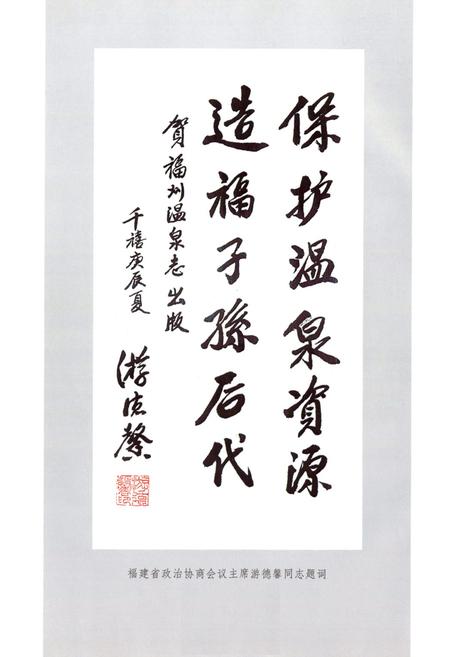 保护温泉資源
造福子孫后代
賀福州温泉志出版
千禧庚辰夏
游德馨
福建省政治协商会议主席游德馨同志题词